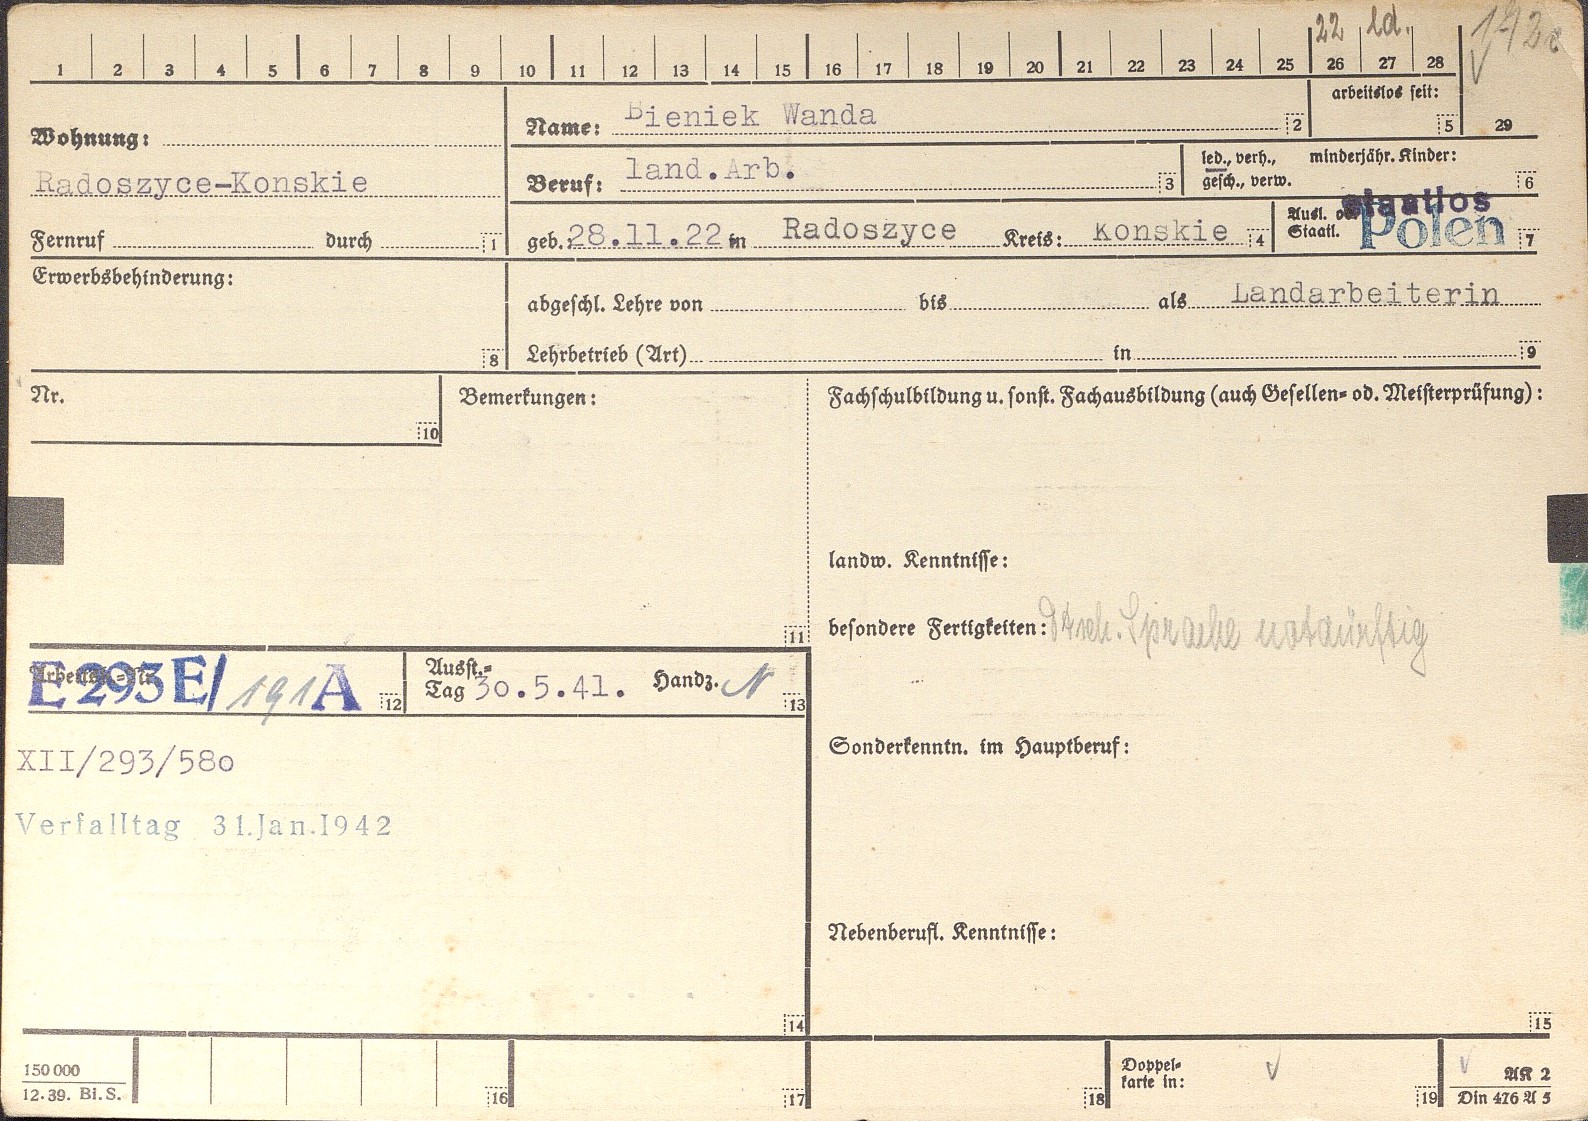 22 ld.
1 2 3 4 5 6 7 8 9 10 11 12 13 14 15 16 17 18 19 20 21 22 23 24 25 26 27 28
arbeitslos seit:
Name: Bieniek Wanda 2 5 29
Wohnung:
Radoszyce-Konskie
Beruf: land.Arb. 3
led., verh., minderjähr. Kinder:
gesch., verw. 6
Fernruf durch 1
geb. 28.11.22 in Radoszyce Kreis: Konskie 4
Ausl. od.
Staatl. 7
staatlos
Polen
Erwerbsbehinderung:
8
abgeschl. Lehre von bis als Landarbeiterin
Lehrbetrieb (Art) in 9
Nr.
10
Bemerkungen:
11
Fachschulbildung u. sonst. Fachausbildung (auch Gesellen- od. Meisterprüfung):
landw. Kenntnisse:
besondere Fertigkeiten: Dtsch. Sprache notdürftig
E 293 E/ 191 A 12
Ausst.-
Tag 30.5.41. Handz. N 13
XII/293/580
Verfalltag 31.Jan.1942
14
Sonderkenntn. im Hauptberuf:
Nebenberufl. Kenntnisse:
15
150 000
12.39. Bi. S.
16 17 18
Doppel-
karte in:
19
AK 2
Din 476 A 5